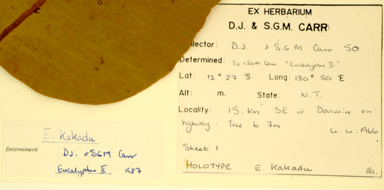 EX HERBARIUM
D.J. & S.G.M. CARR
Collector: D.J. & S.G.M Carr 50
Determined: DJ & SGM Carr "Eucalyptus II"
Lat: 12° 27'S Long: 130° 50'E
Alt: m. State: N.T.
Locality: 15 Km SE of Darwin on
highway. Tree to 7m
Sheet 1
HOLOTYPE E. Kakadu
E. Kakadu
Determinavit DJ. & SGM Carr
Eucalyptus II 1987